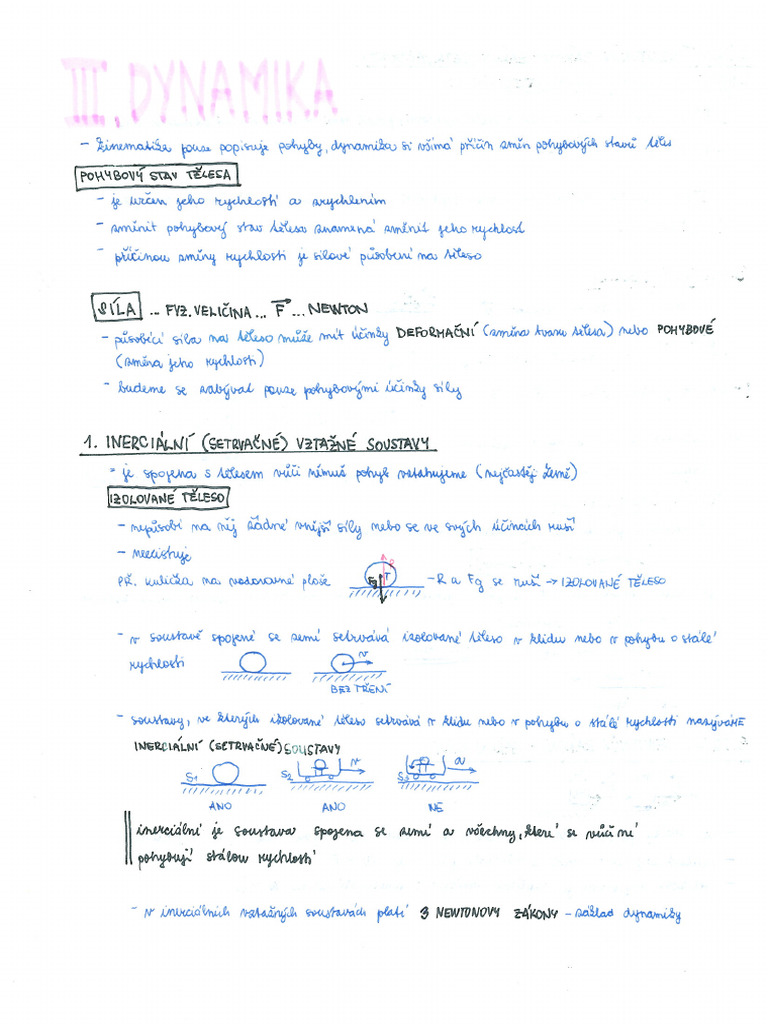 III. DYNAMIKA
- kinematika pouze popisuje pohyby, dynamika si všímá příčin změn pohybových stavů těles
POHYBOVÝ STAV TĚLESA
- je určen jeho rychlostí a zrychlením
- změnit pohybový stav tělesa znamená změnit jeho rychlost
- příčinou změny rychlosti je silové působení na těleso
SÍLA ... FYZ. VELIČINA ... F ... NEWTON
- působící síla na těleso může mít účinky DEFORMAČNÍ (změna tvaru tělesa) nebo POHYBOVÉ
(změna jeho rychlosti)
- budeme se zabývat pouze pohybovými účinky síly
1. INERCIÁLNÍ (SETRVAČNÉ) VZTAŽNÉ SOUSTAVY
- je spojena s tělesem vůči němuž pohyb vztahujeme (nejčastěj Země)
IZOLOVANÉ TĚLESO
- nepůsobí na něj žádné vnější síly nebo se ve svých účincích ruší
- neexistuje
PŘ. kulička na vodorovné ploše R Fg T - R a Fg se ruší → IZOLOVANÉ TĚLESO
- v soustavě spojené se zemí setrvává izolované těleso v klidu nebo v pohybu o stálé
rychlosti v
BEZ TŘENÍ
- soustavy, ve kterých izolované těleso setrvává v klidu nebo v pohybu o stálé rychlosti nazýváme
INERCIÁLNÍ (SETRVAČNÉ) SOUSTAVY
S1 S2 v S3 a
ANO ANO NE
inerciální je soustava spojena se zemí a všechny, které se vůči ní
pohybují stálou rychlostí
- v inerciálních vztažných soustavách platí 3 NEWTONOVY ZÁKONY - základ dynamiky